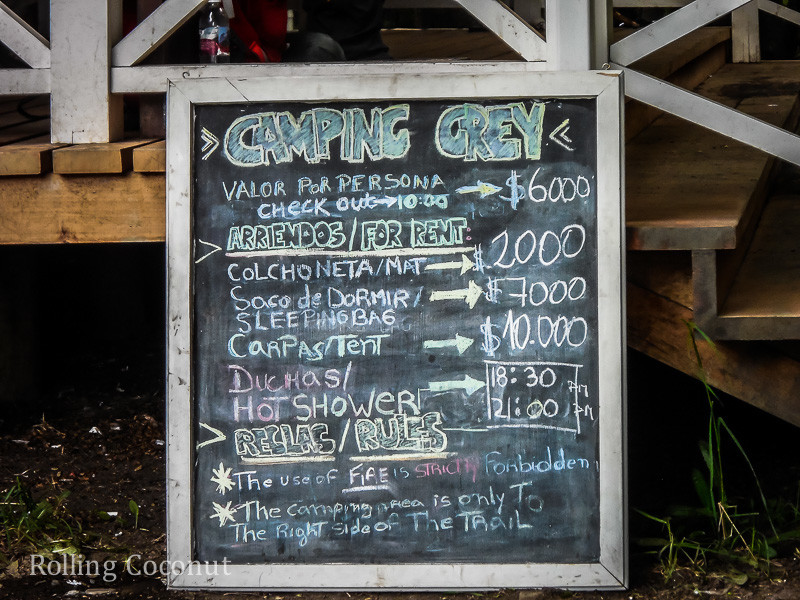 > CAMPING GREY <
VALOR POR PERSONA → $6000
CHECK OUT → 10:00
> ARRIENDOS/FOR RENT:
COLCHONETA/MAT → $2000
Saco de DORMIR/ → $7000
SLEEPINGBAG
CARPAS/TENT → $10.000
DUCHAS/ → 18:30 PM
HOT SHOWER 21:00 PM
> REGLAS/RULES
* The use of FIRE is STRICTLY Forbidden
* The camping area is only To
The Right side of The TRAIL
Rolling Coconut